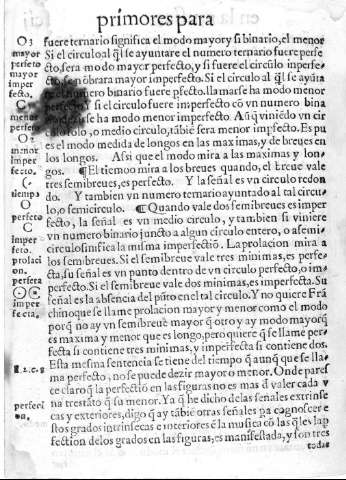 primores para
fuere ternario significa el modo mayor y si binario, el menor
Si el circulo al q̃l se ayuntare el numero ternario fuere perfe
cto, sera modo mayor perfecto, y si fuere el circulo inperfe-
cto, sera modo mayor imperfecto. Si el circulo al q̃l se ayũta
numero binario fuere pfecto, llamarse ha modo menor
si el circulo fuere imperfecto cõ vn numero bina
se ha modo menor imperfecto. Aũq̃ viniẽdo vn cir
o, o medio circulo, tãbiẽ sera menor impfecto. Es pu
es el modo medida de longos en las maximas, y de breues en
los longos. Assi que el modo mira a las maximas y lon-
gos. ¶El tiempo mira a los breues quando, el breue vale
tres semibreues, es perfecto. Y la señal es vn circulo redon
do. Y tambien vn numero ternario ayuntado al tal circu-
lo, o semicirculo. ¶Quando vale dos semibreues es imper
fecto, la señal es vn medio circulo, y tambien si viniere
vn numero binario juncto a algun circulo entero, o a semi
circulo significa la misma imperfectiõ. La prolacion mira a
los semibreues. Si el semibreue vale tres minimas, es perfe-
cta, su señal es vn pũnto dentro de vn circulo perfecto, o im-
perfecto. Si el semibreue vale dos minimas, es imperfecta. Su
señal es la absencia del pũto en el tal circulo. Y no quiere Frã
chino que se llame prolacion mayor y menor como el modo
porq̃ no ay vn semibreue mayor q̃ otro y ay modo mayor q̃
es maxima y menor que es longo, pero quiere q̃ se llame per-
fecta si contiene tres minimas, y imperfecta si contiene dos.
Esta mesma sentencia se tiene del tiempo q̃ aunq̃ que se lla-
ma perfecto, no se puede dezir mayor o menor. Onde pares
ce claro q̃ la perfectiõ en las figuras no es mas d̃ valer cada v
na tres tãto q̃ su menor. Ya q̃ he dicho delas señales extrinse
cas y exteriores, digo q̃ ay tãbiẽ otras señales pa cognoscer e
stos grados intrinsecas e interiores ẽ la musica cõ las q̃les la p
fection delos grados en las figuras, es manifestada, y son tres
todas
O3
mayor
perfeto
mayor
imper
fecto,
C
menor
perfeto
O2
menor
imper
fecto.
tiempo
O
perfeto
C
imper
feto.
prolaci
on.
perfeta
imper
fecta,
perfecti
on,